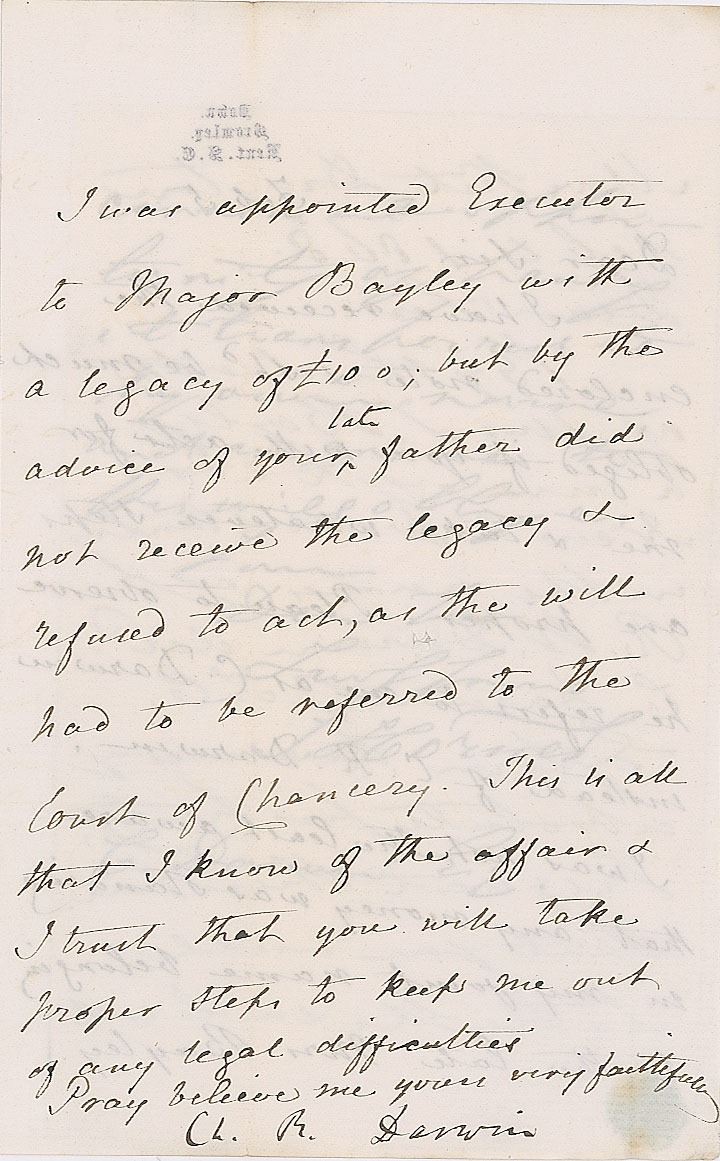 Down.
Bromley.
Kent. S.E.
I was appointed Executor
to Major Bayley with
a legacy of £100; but by the
late
advice of your father did
not receive the legacy &
refused to act, as the will
had to be referred to the
Court of Chancery. This is all
that I know of the affair &
I trust that you will take
proper steps to keep me out
of any legal difficulties
Pray believe me yours very faithfully
Ch. R. Darwin